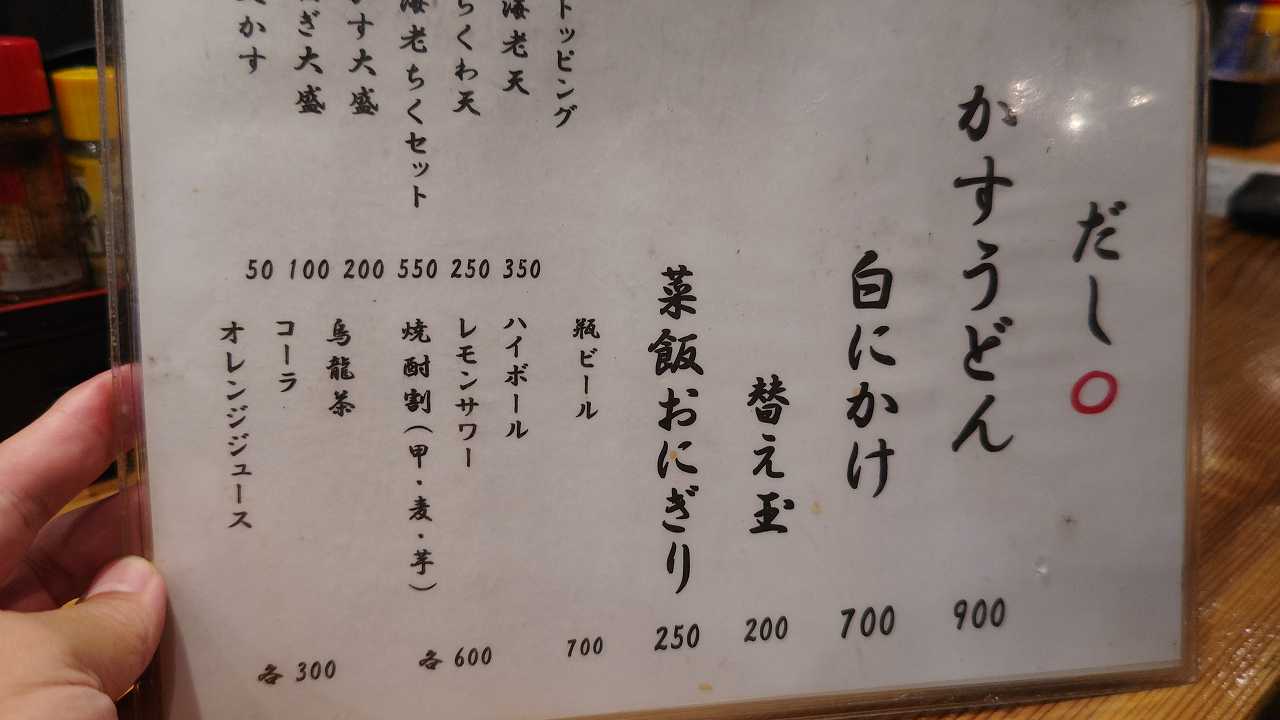 だし○
かすうどん 900
白にかけ 700
替え玉 200
菜飯おにぎり 250
トッピング
海老天 350
ちくわ天 250
海老ちくセット 550
かす大盛 200
ねぎ大盛 100
かす 50
瓶ビール 700
ハイボール
レモンサワー
焼酎割(甲・麦・芋)
各600
烏龍茶
コーラ
オレンジジュース
各300